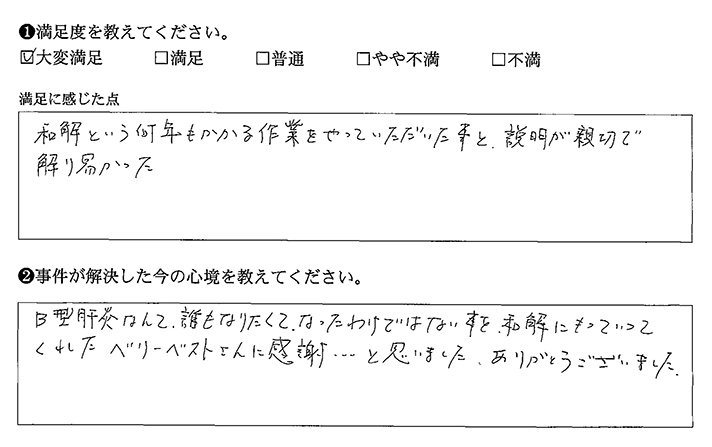 ❶満足度を教えてください。
☑大変満足 □満足 □普通 □やや不満 □不満
満足に感じた点
和解という何年もかかる作業をやっていただいた事と、説明が親切で
解り易かった
❷事件が解決した今の心境を教えてください。
B型肝炎なんて、誰もなりたくて、なったわけではない事を、和解にもっていって
くれた ベリーベストさんに感謝…と思いました、ありがとうございました。